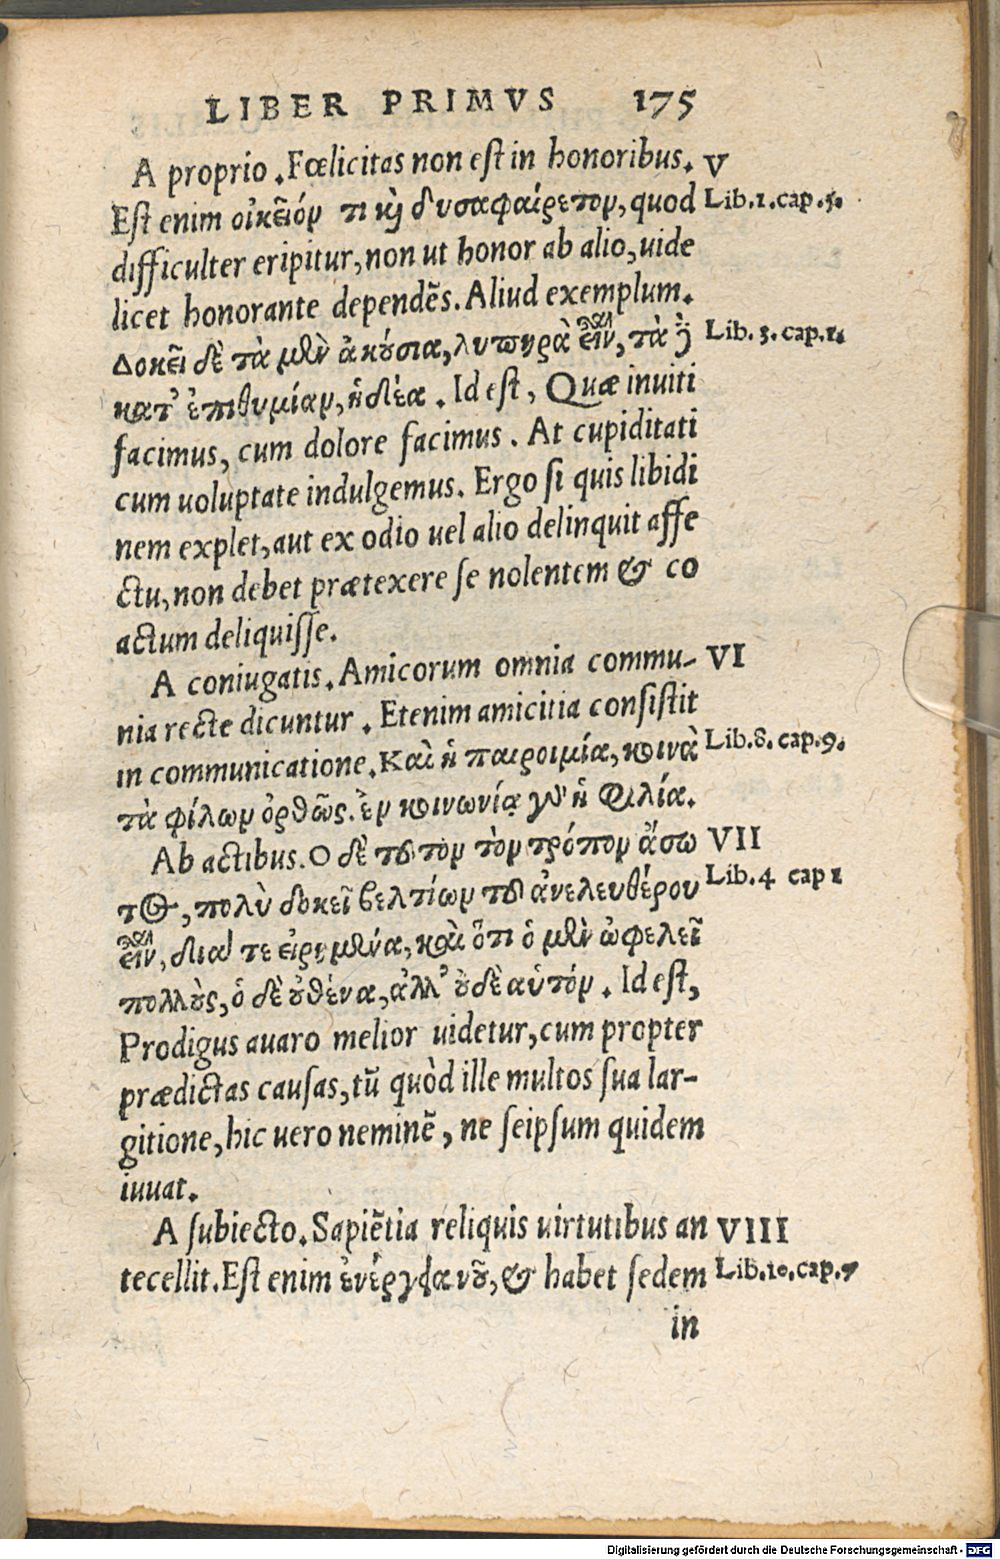 LIBER PRIMVS 175
A proprio. Fœlicitas non est in honoribus. V
Est enim οἰκεῖόν τι καὶ δυσαφαίρετον, quod Lib.1.cap.5.
difficulter eripitur, non ut honor ab alio, uide
licet honorante dependēs. Aliud exemplum.
Δοκεῖ δὲ τὰ μὲν ἀκούσια, λυπηρὰ εἶναι, τὰ δὲ Lib.3.cap.1.
κατ' ἐπιθυμίαν, ἡδέα. Id est, Quæ inuiti
facimus, cum dolore facimus. At cupiditati
cum uoluptate indulgemus. Ergo si quis libidi
nem explet, aut ex odio uel alio delinquit affe
ctu, non debet prætexere se nolentem & co
actum deliquisse.
A coniugatis. Amicorum omnia commu- VI
nia recte dicuntur. Etenim amicitia consistit
in communicatione. Καὶ ἡ παιροιμία, κοινὰ Lib.8.cap.9.
τὰ φίλων ὀρθῶς. ἐν κοινωνίᾳ γὰρ ἡ φιλία.
Ab actibus. Ο δὲ τοῦτον τὸν τρόπον ἄσω VII
τος, πολὺ δοκεῖ βελτίων τοῦ ἀνελευθέρου Lib.4 cap 1
εἶναι, διά τε εἰρημένα, καὶ ὅτι ὁ μὲν ὠφελεῖ
πολλοὺς, ὁ δὲ οὐθένα, ἀλλ' οὐδὲ αὑτόν. Id est,
Prodigus auaro melior uidetur, cum propter
prædictas causas, tū quòd ille multos sua lar-
gitione, hic uero neminē, ne seipsum quidem
iuuat.
A subiecto. Sapiētia reliquis uirtutibus an VIII
tecellit. Est enim ἐνέργεια νοῦ, & habet sedem Lib.10.cap.7
in
Digitalisierung gefördert durch die Deutsche Forschungsgemeinschaft - DFG